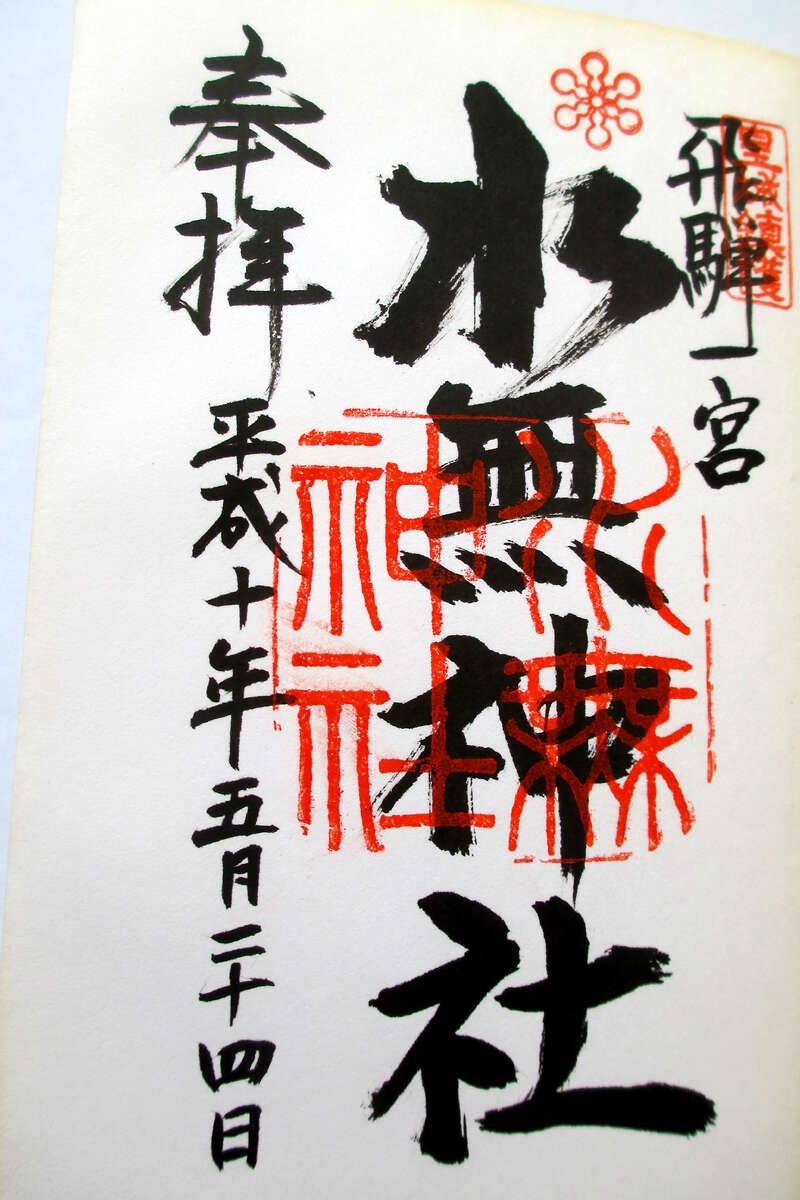 飛騨一宮
皇城鎮護
水無神社
水無神社
奉拝
平成十年五月二十四日